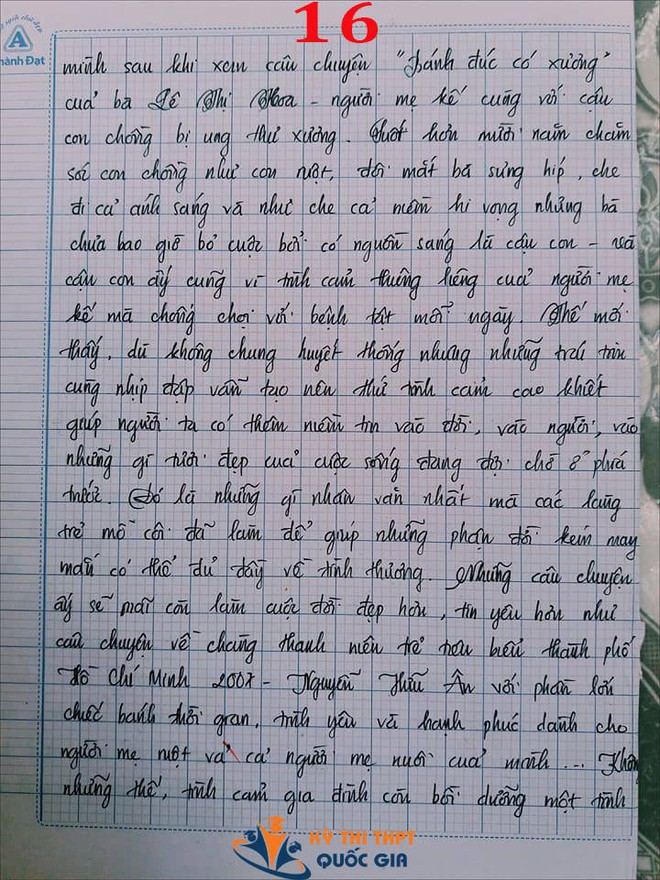 16
A
hành Đạt
mình sau khi xem câu chuyện "Bánh đúc có xương"
của bà Lê Thị Hoa - người mẹ kế cùng với cậu
con chồng bị ung thư xương. Suốt hơn mười năm chăm
sóc con chồng như con ruột, đôi mắt bà sưng híp, che
đi cả ánh sáng và như che cả niềm hi vọng nhưng bà
chưa bao giờ bỏ cuộc bởi có nguồn sáng là cậu con - mà
cậu con ấy cũng vì tình cảm thiêng liêng của người mẹ
kế mà chống chọi với bệnh tật mỗi ngày. Thế mới
thấy, dù không chung huyết thống nhưng những trái tim
cùng nhịp đập vẫn tạo nên thứ tình cảm cao khiết
giúp người ta có thêm niềm tin vào đời, vào người, vào
những gì tươi đẹp của cuộc sống đang đợi chờ ở phía
trước. Đó là những gì nhân văn nhất mà các làng
trẻ mồ côi đã làm để giúp những phận đời kém may
mắn có thể đủ đầy về tình thương. Những câu chuyện
ấy sẽ mãi còn làm cuộc đời đẹp hơn, tin yêu hơn như
câu chuyện về chàng thanh niên trẻ tiêu biểu thành phố
Hồ Chí Minh 2007 - Nguyễn Hữu Ân với phần lớn
chiếc bánh thời gian, tình yêu và hạnh phúc dành cho
người mẹ ruột và cả người mẹ nuôi của mình... Không
những thế, tình cảm gia đình còn bồi dưỡng một tình
KỲ THI THPT
QUỐC GIA